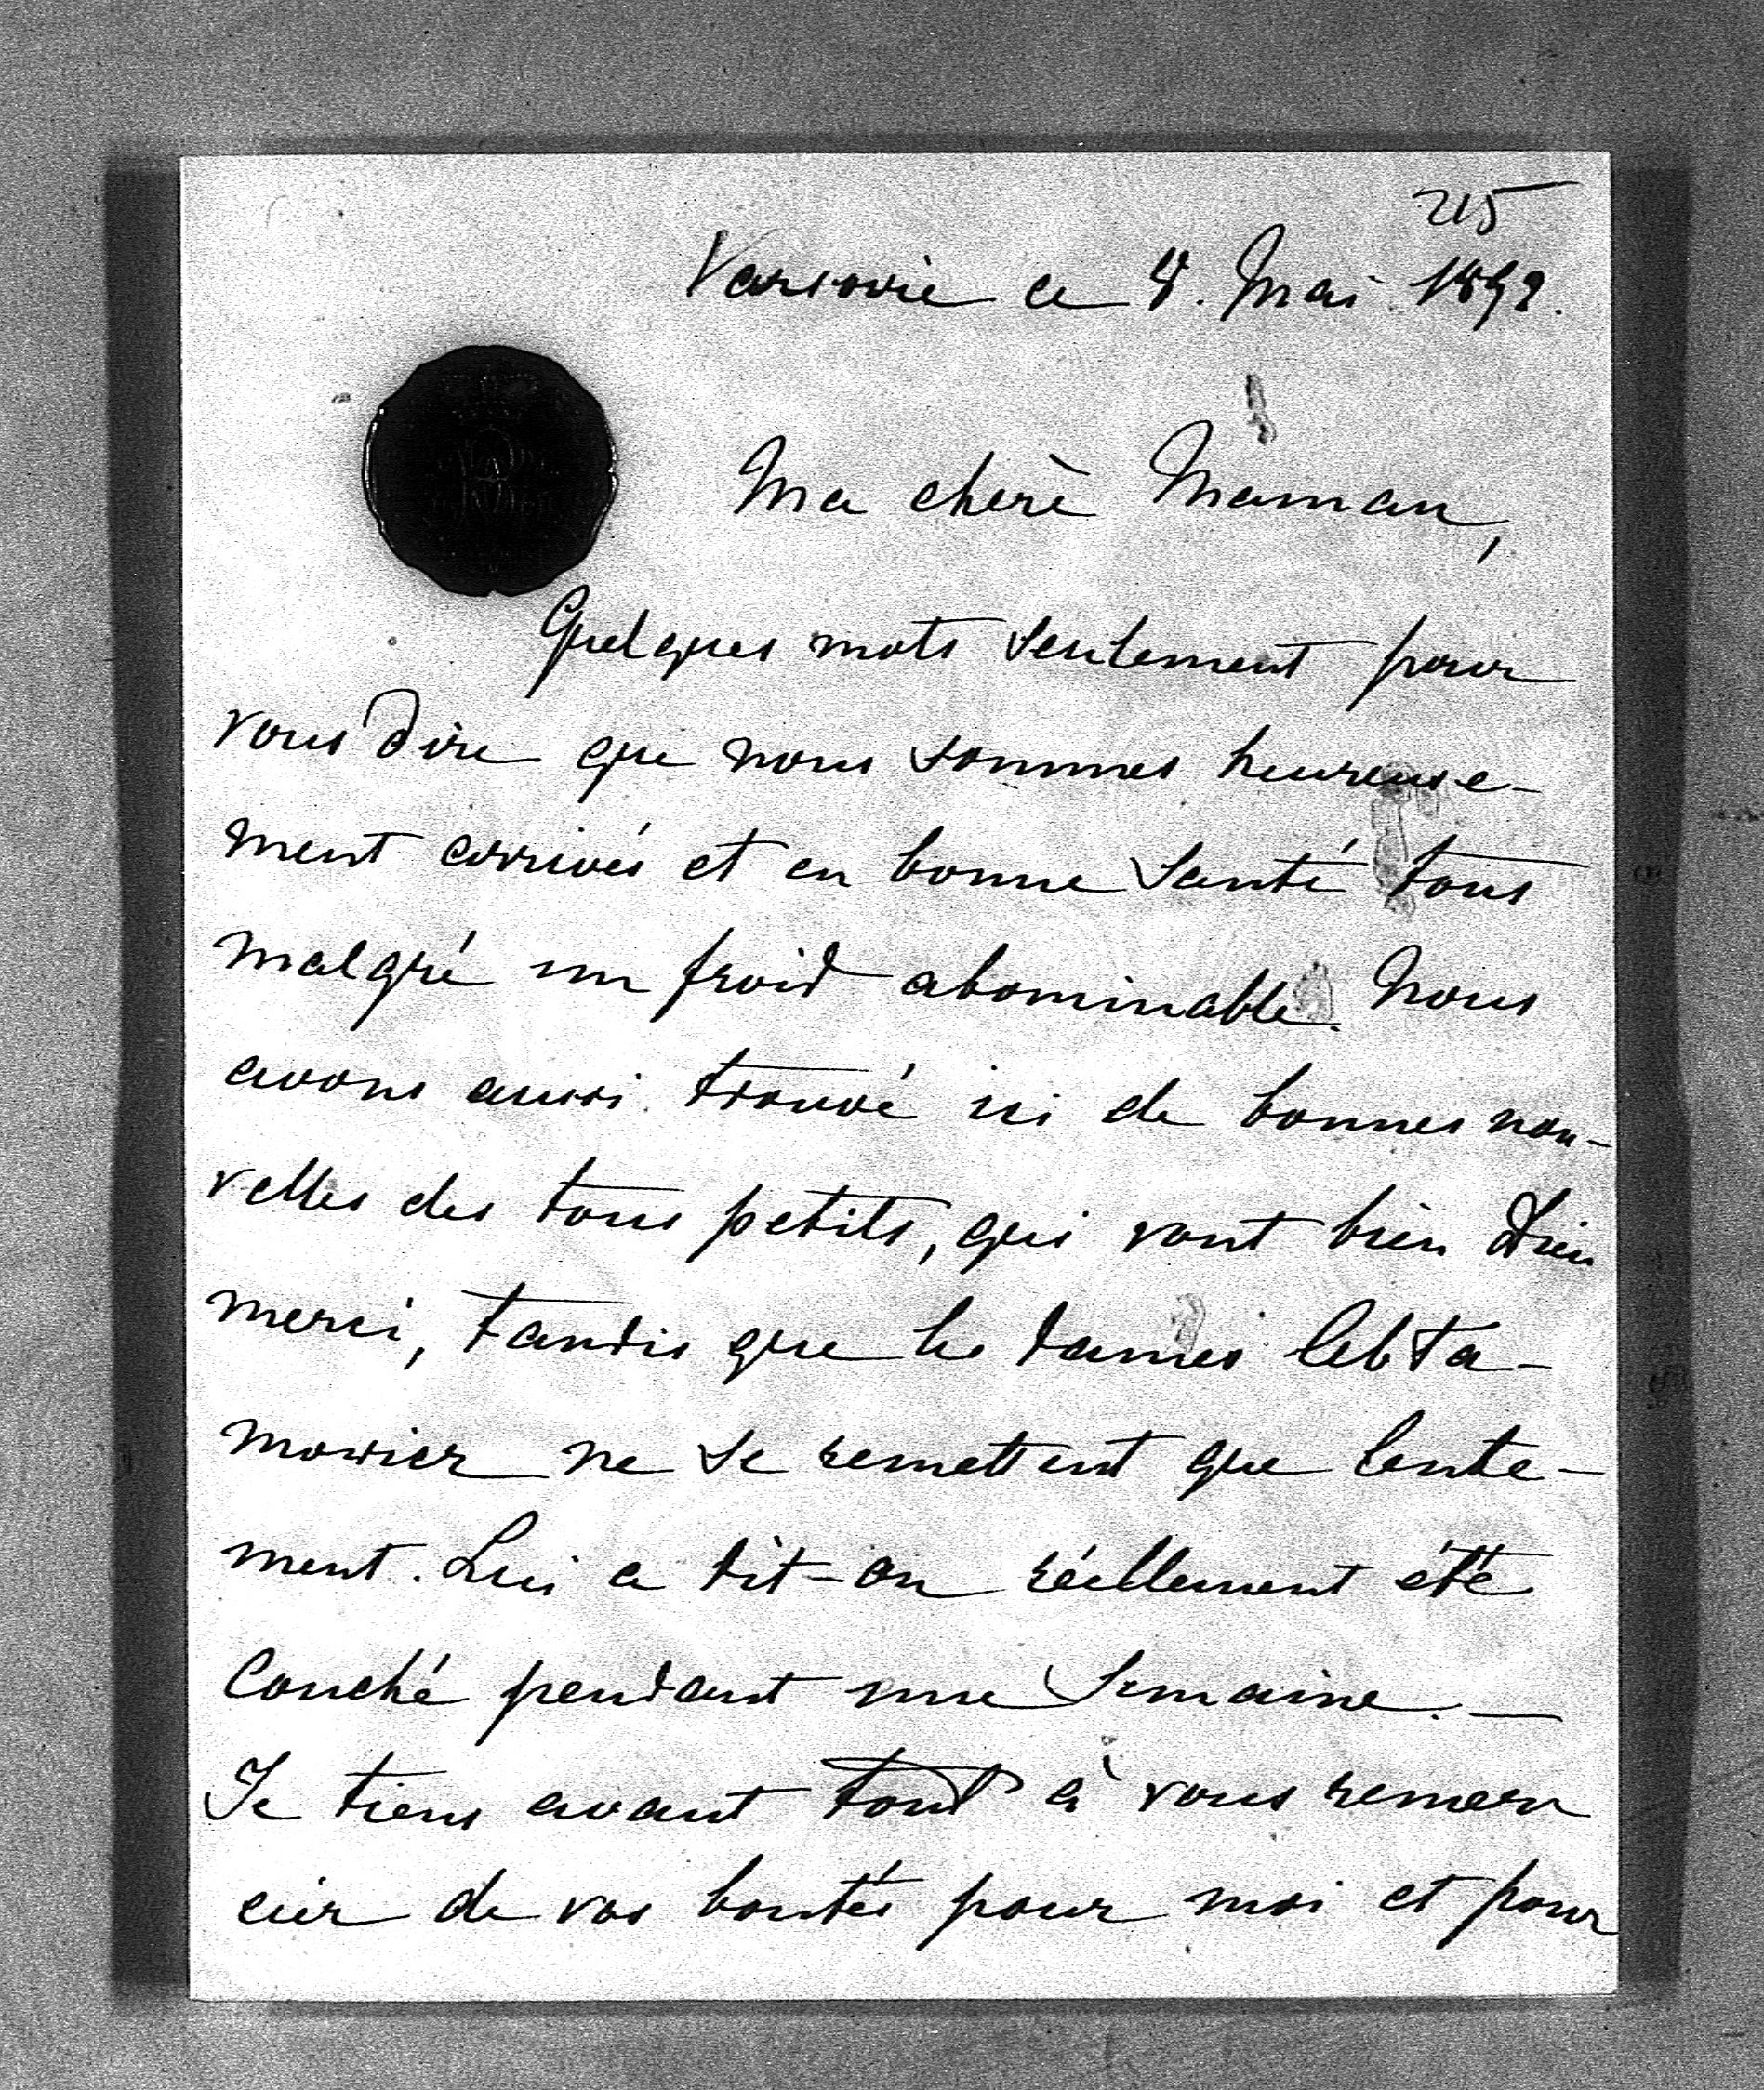 215
Varsovie ce 8. Mai 1892.
Ma chère Maman,
Quelques mots seulement pour
vous dire que nous sommes heureuse-
ment arrivés et en bonne santé tous
malgré un froid abominable. Nous
avons aussi trouvé ici de bonnes nou-
velles des tous petits, qui vont bien Dieu
merci, tandis que les dames
ne se remettent que lente-
ment. Lui a dit-on réellement été
couché pendant une semaine. —
Je tiens avant tout à vous remer
cier de vos bontés pour moi et pour